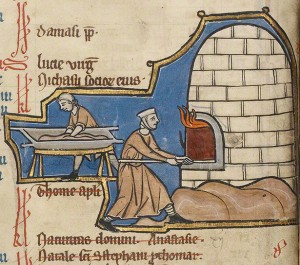 Damasi pp.
lucie virg
Nichasii socior eius.
Thome apli
Natiuitas domini. Anastasie.
Natale sci Stephani pthomar.